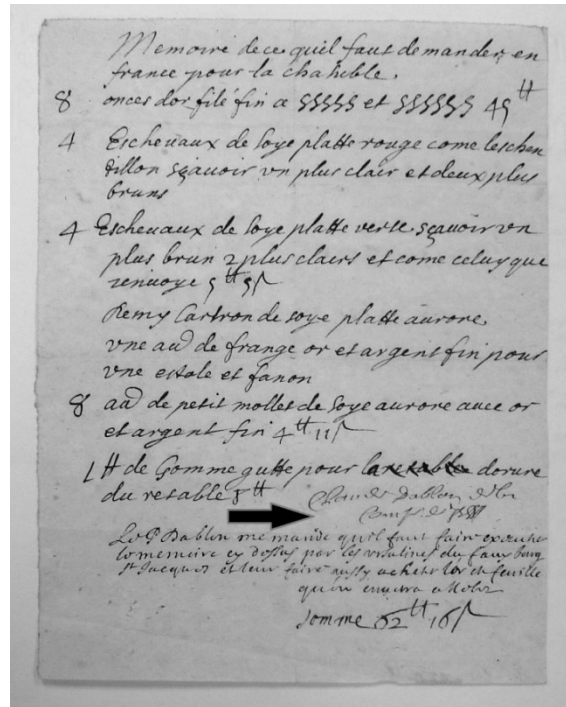 Memoire de ce quil faut demander en
france pour la chasuble.
8 onces dor filé fin a SSSSS et SSSSSS 45 ₶
4 Escheuaux de soye platte rouge come leschan
tillon sçauoir vn plus clair et deux plus
bruns
4 Escheuaux de soye platte verte sçauoir vn
plus brun 2 plus clairs et come celuy que
renuoye 5 ₶ 5 s
demy Cartron de soye platte aurore.
vne de frange or et argent fin pour
vne estole et fanon
8 de petit mollet de soye aurore auec or
et argent fin 4 ₶ 11 s
1 ₶ de Gomme gutte pour dorure
du retable 8 ₶
Claude Dablon de la
Comp. de
Le P Dablon me mande quil faut faire executer
le memoire cy dessus par les du faux bourg
st Jacques et leur faire aussy acheter lor en feuille
quon enuoira
Somme 62 ₶ 16 s